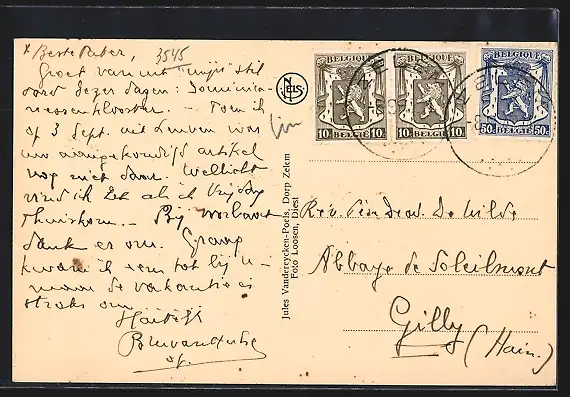 Beste Pater, 3545
Groet van uit "mijn" stil
oord dezer dagen: Dominica-
nessenklooster. — Toen ik
op 3 Sept. uit Leuven was
uw aangekondigd artikel
nog niet daar. Wellicht
vind ik het als ik Vrijdag
thuiskom. — Bij voorbaat
dank er om. Graag
kwam ik eens tot bij u —
maar de vakantie is
straks om.
Hartelijk
NELS
Jules Vandereycken-Poels, Dorp Zelem
Foto Loosen, Diest
BELGIQUE
10 BELGIË 10
BELGIQUE
10 BELGIË 10
BELGIQUE
50c BELGIË 50c
Rev.
Abbaye de Soleilmont
Gilly
(Hain.)